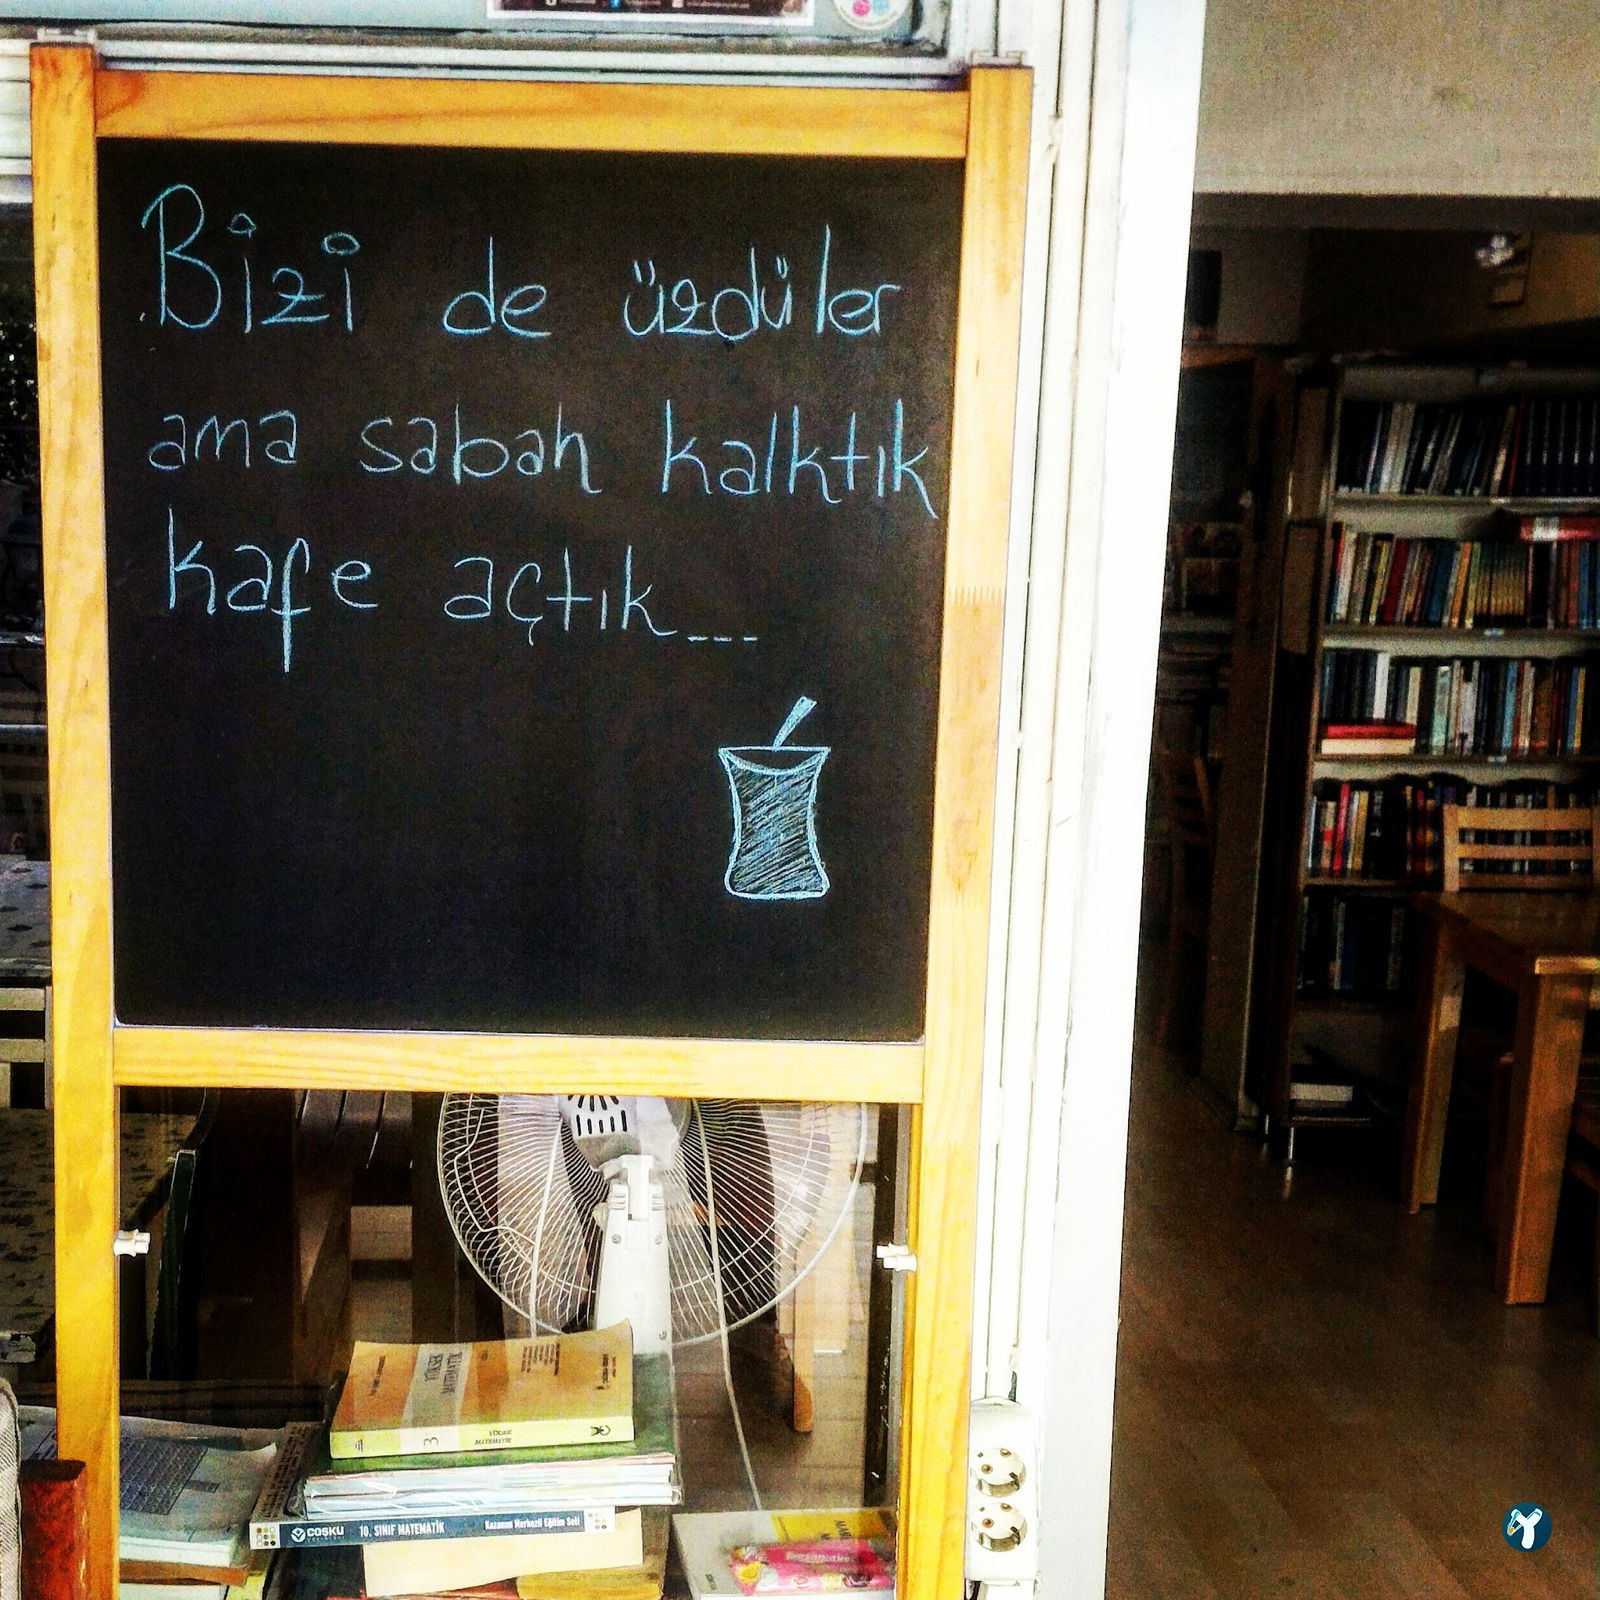 Bizi de üzdüler
ama sabah kalktık
kafe açtık...
YÜKSEK
MATEMATİK
3
YÜKSEK
MATEMATİK
COŞKU
10. SINIF MATEMATİK
Kazanım Merkezli Eğitim Seti